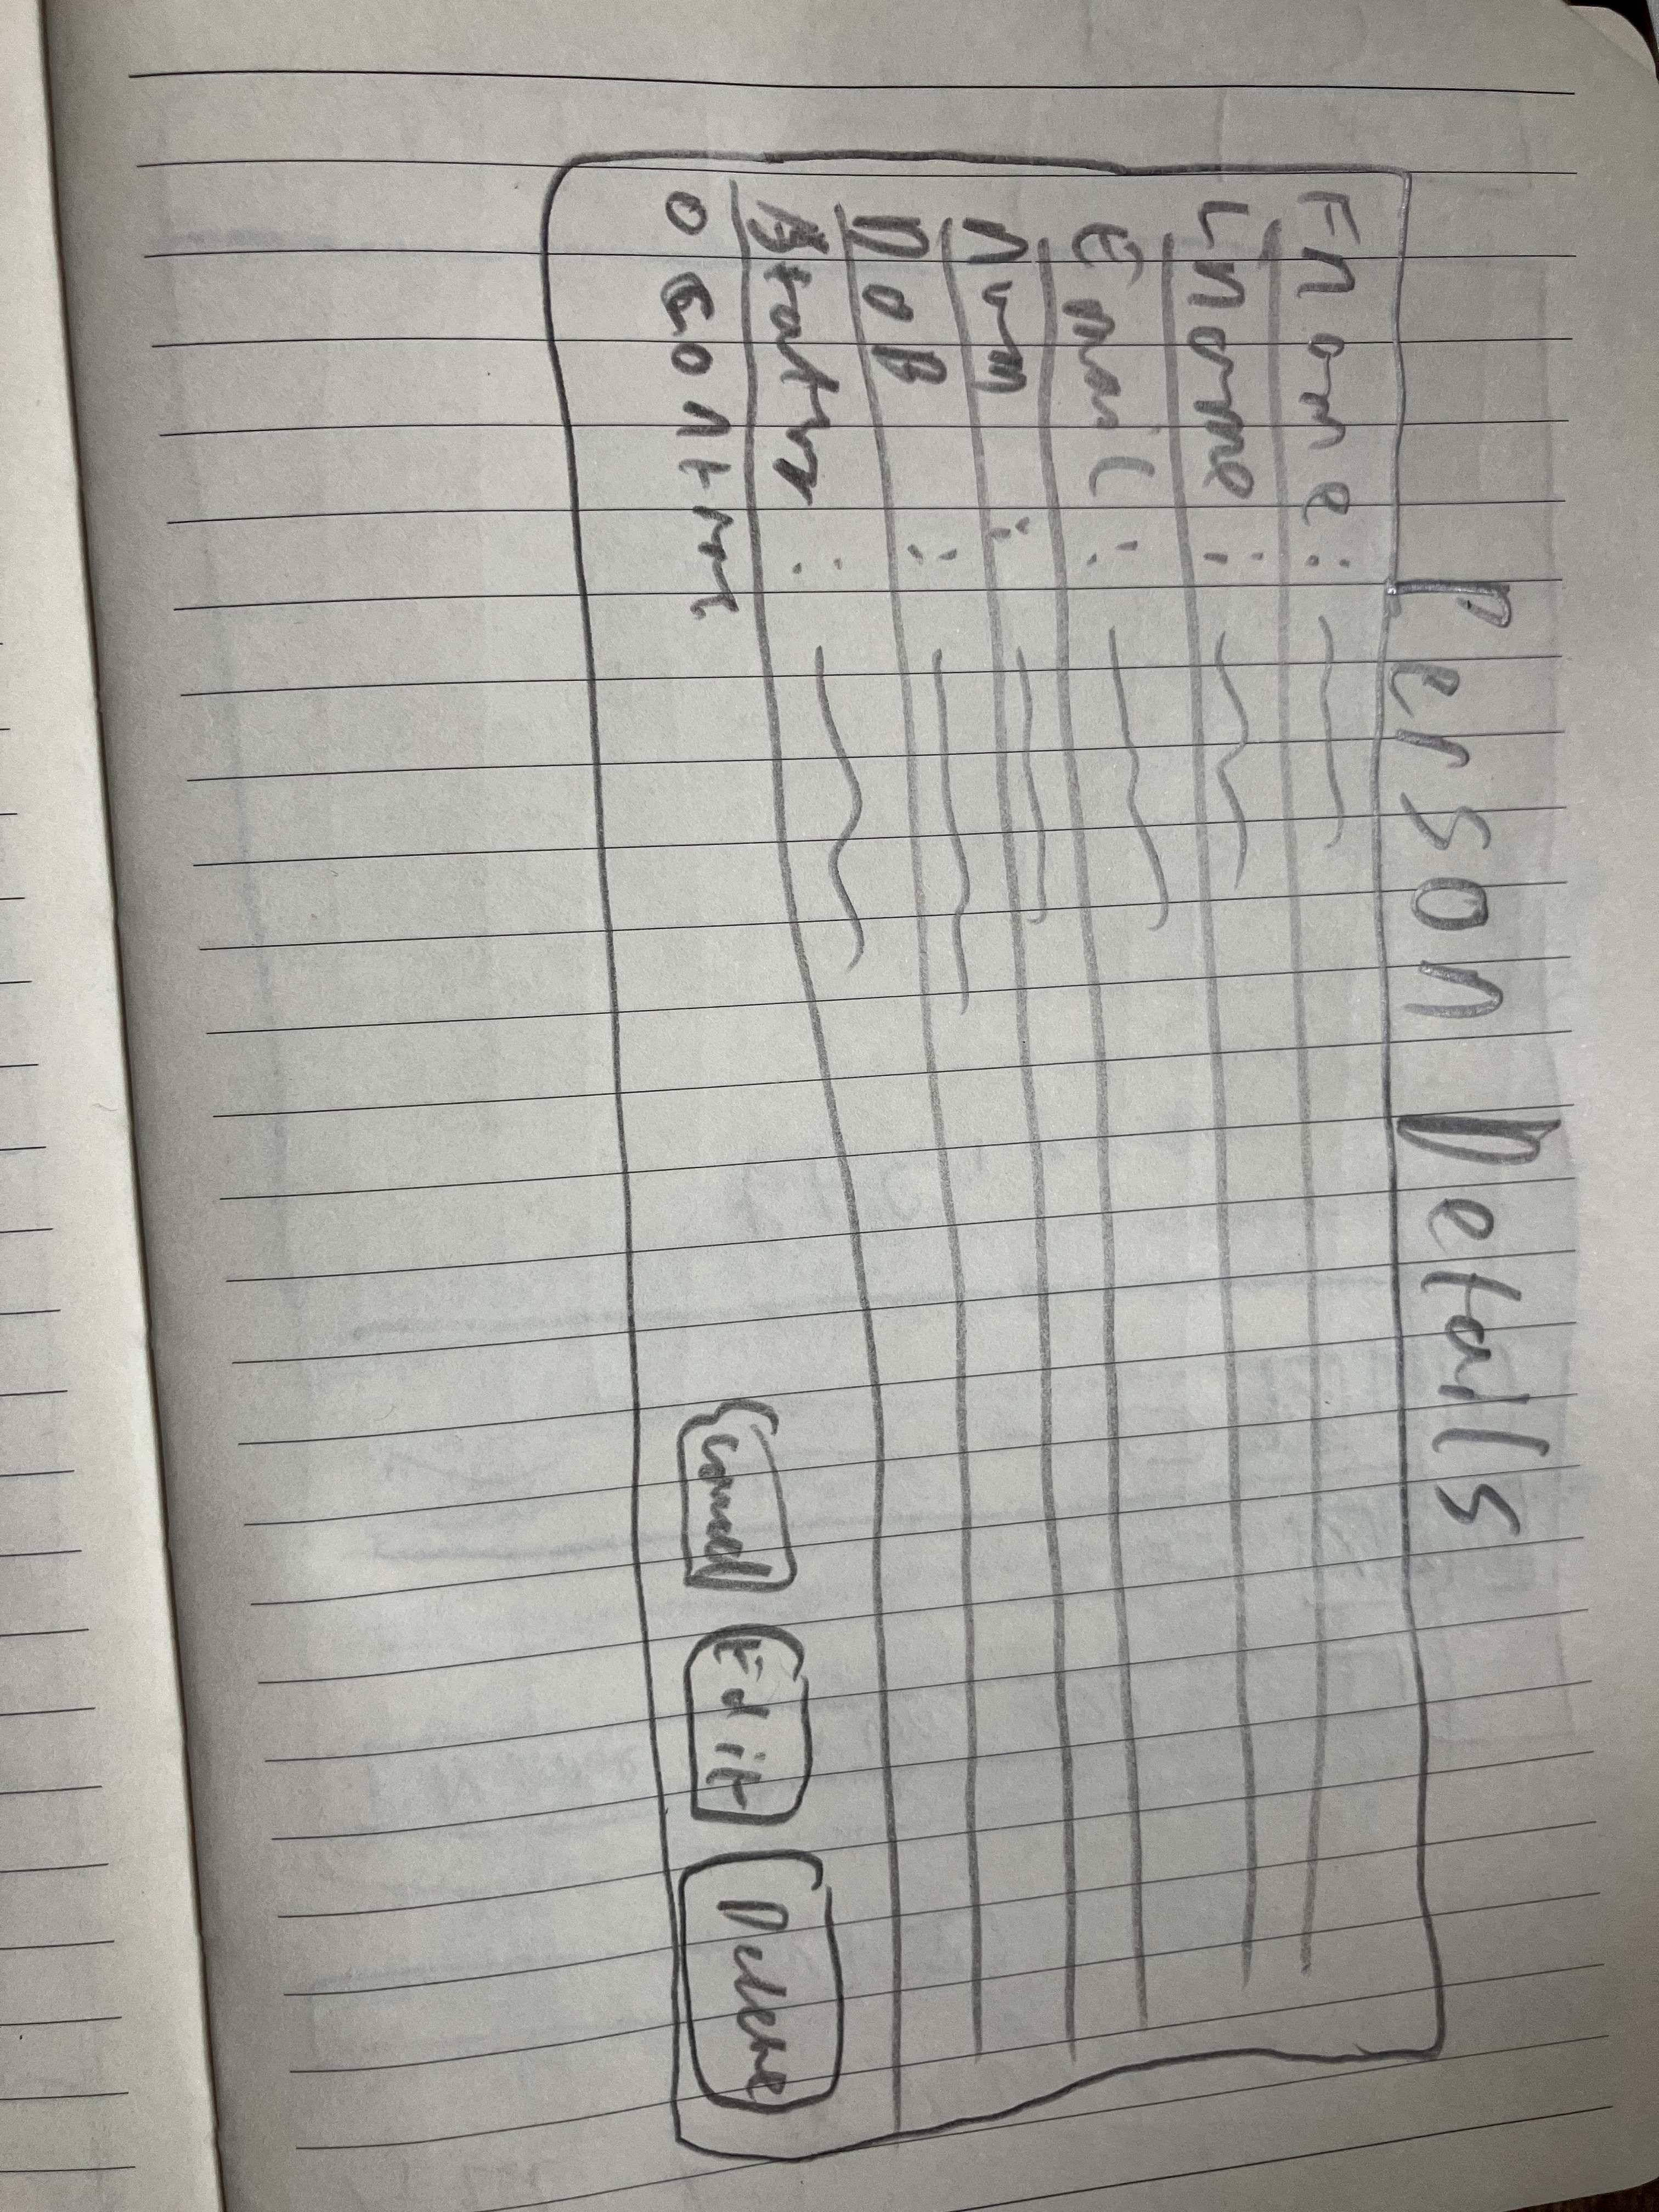 Person Details
Fname :
Lname :
Email :
Num :
DoB :
Status :
Cancel Edit Delete